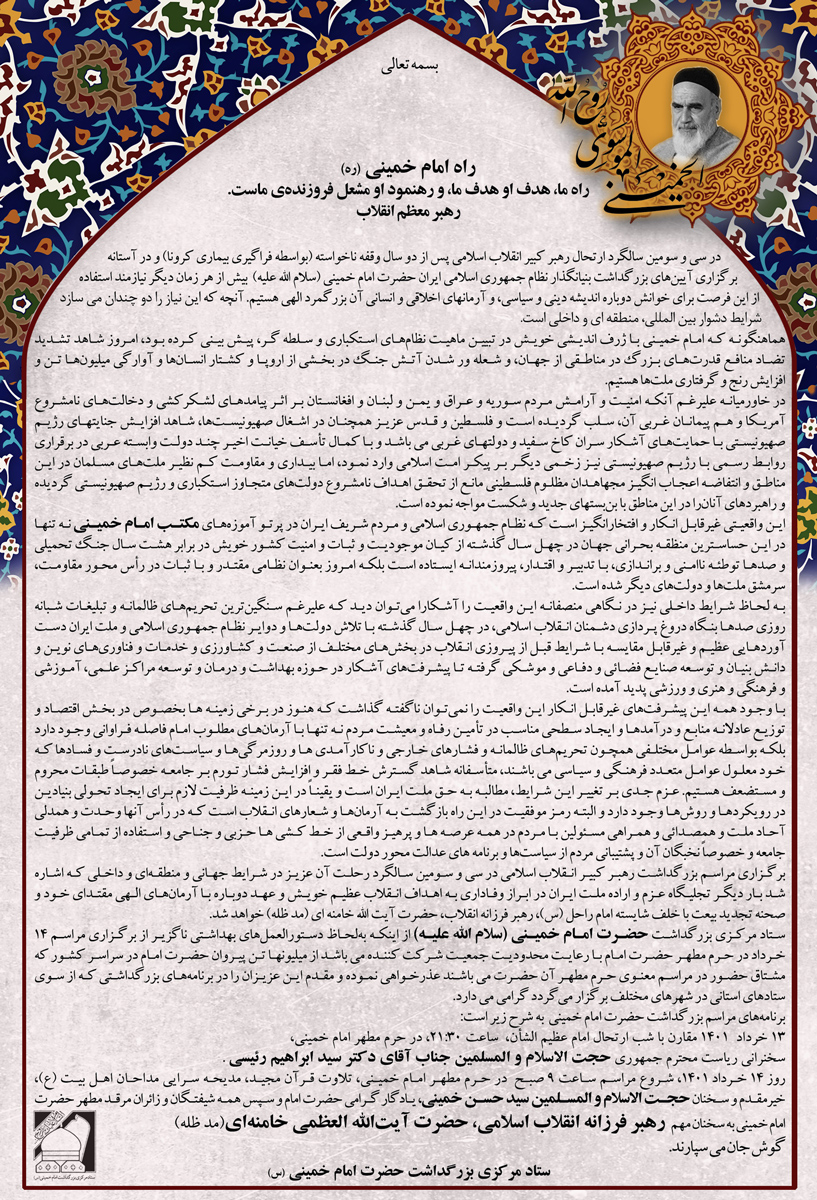 بسمه تعالی
روح الله
الموسوی
الخمینی
راه امام خمینی (ره)
راه ما، هدف او هدف ما، و رهنمود او مشعل فروزنده‌ی ماست.
رهبر معظم انقلاب
در سی و سومین سالگرد ارتحال رهبر کبیر انقلاب اسلامی پس از دو سال وقفه ناخواسته (بواسطه فراگیری بیماری کرونا) و در آستانه
برگزاری آیین‌های بزرگداشت بنیانگذار نظام جمهوری اسلامی ایران حضرت امام خمینی (سلام الله علیه) بیش از هر زمان دیگر نیازمند استفاده
از این فرصت برای خوانش دوباره اندیشه دینی و سیاسی، و آرمانهای اخلاقی و انسانی آن بزرگمرد الهی هستیم. آنچه که این نیاز را دو چندان می سازد
شرایط دشوار بین المللی، منطقه ای و داخلی است.
هماهنگونه که امام خمینی با ژرف اندیشی خویش در تبیین ماهیت نظام‌های استکباری و سلطه گر، پیش بینی کرده بود، امروز شاهد تشدید
تضاد منافع قدرت‌های بزرگ در مناطقی از جهان، و شعله ور شدن آتش جنگ در بخشی از اروپا و کشتار انسان‌ها و آوارگی میلیون‌ها تن و
افزایش رنج و گرفتاری ملت‌ها هستیم.
در خاورمیانه علیرغم آنکه امنیت و آرامش مردم سوریه و عراق و یمن و لبنان و افغانستان بر اثر پیامدهای لشکرکشی و دخالت‌های نامشروع
آمریکا و هم پیمانان غربی آن، سلب گردیده است و فلسطین و قدس عزیز همچنان در اشغال صهیونیست‌ها، شاهد افزایش جنایتهای رژیم
صهیونیستی با حمایت‌های آشکار سران کاخ سفید و دولتهای غربی می باشد و با کمال تأسف خیانت اخیر چند دولت وابسته عربی در برقراری
روابط رسمی با رژیم صهیونیستی نیز زخمی دیگر بر پیکر امت اسلامی وارد نمود، اما بیداری و مقاومت کم نظیر ملت‌های مسلمان در این
مناطق و انتفاضه اعجاب انگیز مجهاهدان مظلوم فلسطینی مانع از تحقق اهداف نامشروع دولت‌های متجاوز استکباری و رژیم صهیونیستی گردیده
و راهبردهای آنان‌را در این مناطق با بن‌بستهای جدید و شکست مواجه نموده است.
این واقعیتی غیرقابل انکار و افتخارانگیز است که نظام جمهوری اسلامی و مردم شریف ایران در پرتو آموزه‌های مکتب امام خمینی نه تنها
در این حساسترین منطقه بحرانی جهان در چهل سال گذشته از کیان موجودیت و ثبات و امنیت کشور خویش در برابر هشت سال جنگ تحمیلی
و صدها توطئه ناامنی و براندازی، با تدبیر و اقتدار، پیروزمندانه ایستاده است بلکه امروز بعنوان نظامی مقتدر و با ثبات در رأس محور مقاومت،
سرمشق ملت‌ها و دولت‌های دیگر شده است.
به لحاظ شرایط داخلی نیز در نگاهی منصفانه این واقعیت را آشکارا می‌توان دید که علیرغم سنگین‌ترین تحریم‌های ظالمانه و تبلیغات شبانه
روزی صدها بنگاه دروغ پردازی دشمنان انقلاب اسلامی، در چهل سال گذشته با تلاش دولت‌ها و دوایر نظام جمهوری اسلامی و ملت ایران دست
آوردهایی عظیم و غیرقابل مقایسه با شرایط قبل از پیروزی انقلاب در بخش‌های مختلف از صنعت و کشاورزی و خدمات و فناوری‌های نوین و
دانش بنیان و توسعه صنایع فضائی و دفاعی و موشکی گرفته تا پیشرفت‌های آشکار در حوزه بهداشت و درمان و توسعه مراکز علمی، آموزشی
و فرهنگی و هنری و ورزشی پدید آمده است.
با وجود همه این پیشرفت‌های غیرقابل انکار این واقعیت را نمی‌توان ناگفته گذاشت که هنوز در برخی زمینه ها بخصوص در بخش اقتصاد و
توزیع عادلانه منابع و درآمدها و ایجاد سطحی مناسب در تأمین رفاه و معیشت مردم نه تنها با آرمان‌های مطلوب امام فاصله فراوانی وجود دارد
بلکه بواسطه عوامل مختلفی همچون تحریم‌های ظالمانه و فشارهای خارجی و ناکارآمدی ها و روزمرگی‌ها و سیاست‌های نادرست و فسادها که
خود معلول عوامل متعدد فرهنگی و سیاسی می باشند، متأسفانه شاهد گسترش خط فقر و افزایش فشار تورم بر جامعه خصوصاً طبقات محروم
و مستضعف هستیم. عزم جدی بر تغییر این شرایط، مطالبه به حق ملت ایران است و یقیناً در این زمینه ظرفیت لازم برای ایجاد تحولی بنیادین
در رویکردها و روش‌ها وجود دارد و البته رمز موفقیت در این راه بازگشت به آرمان‌ها و شعارهای انقلاب است که در رأس آنها وحدت و همدلی
آحاد ملت و همصدائی و همراهی مسئولین با مردم در همه عرصه ها و پرهیز واقعی از خط کشی ها حزبی و جناحی و استفاده از تمامی ظرفیت
جامعه و خصوصاً نخبگان آن و پشتیبانی مردم از سیاست‌ها و برنامه های عدالت محور دولت است.
برگزاری مراسم بزرگداشت رهبر کبیر انقلاب اسلامی در سی و سومین سالگرد رحلت آن عزیز در شرایط جهانی و منطقه‌ای و داخلی که اشاره
شد بار دیگر تجلیگاه عزم و اراده ملت ایران در ابراز وفاداری به اهداف انقلاب عظیم خویش و عهد دوباره با آرمان‌های الهی مقتدای خود و
صحنه تجدید بیعت با خلف شایسته امام راحل (س)، رهبر فرزانه انقلاب، حضرت آیت الله خامنه ای (مد ظله) خواهد شد.
ستاد مرکزی بزرگداشت حضرت امام خمینی (سلام الله علیه) از اینکه به‌لحاظ دستورالعمل‌های بهداشتی ناگزیر از برگزاری مراسم ۱۴
خرداد در حرم مطهر حضرت امام با رعایت محدودیت جمعیت شرکت کننده می باشد از میلیونها تن پیروان حضرت امام در سراسر کشور که
مشتاق حضور در مراسم معنوی حرم مطهر آن حضرت می باشند عذرخواهی نموده و مقدم این عزیزان را در برنامه‌های بزرگداشتی که از سوی
ستادهای استانی در شهرهای مختلف برگزار می گردد گرامی می دارد.
برنامه‌های مراسم بزرگداشت حضرت امام خمینی به شرح زیر است:
۱۳ خرداد ۱۴۰۱ مقارن با شب ارتحال امام عظیم الشأن، ساعت ۲۱:۳۰، در حرم مطهر امام خمینی،
سخنرانی ریاست محترم جمهوری حجت الاسلام و المسلمین جناب آقای دکتر سید ابراهیم رئیسی .
روز ۱۴ خرداد ۱۴۰۱، شروع مراسم ساعت ۹ صبح در حرم مطهر امام خمینی، تلاوت قرآن مجید، مدیحه سرایی مداحان اهل بیت (ع)،
خیرمقدم و سخنان حجت الاسلام و المسلمین سید حسن خمینی، یادگار گرامی حضرت امام و سپس همه شیفتگان و زائران مرقد مطهر حضرت
امام خمینی به سخنان مهم رهبر فرزانه انقلاب اسلامی، حضرت آیت‌الله العظمی خامنه‌ای (مد ظله)
گوش جان می سپارند.
ستاد مرکزی بزرگداشت حضرت امام خمینی (س)
ستاد مرکزی بزرگداشت امام خمینی (س)